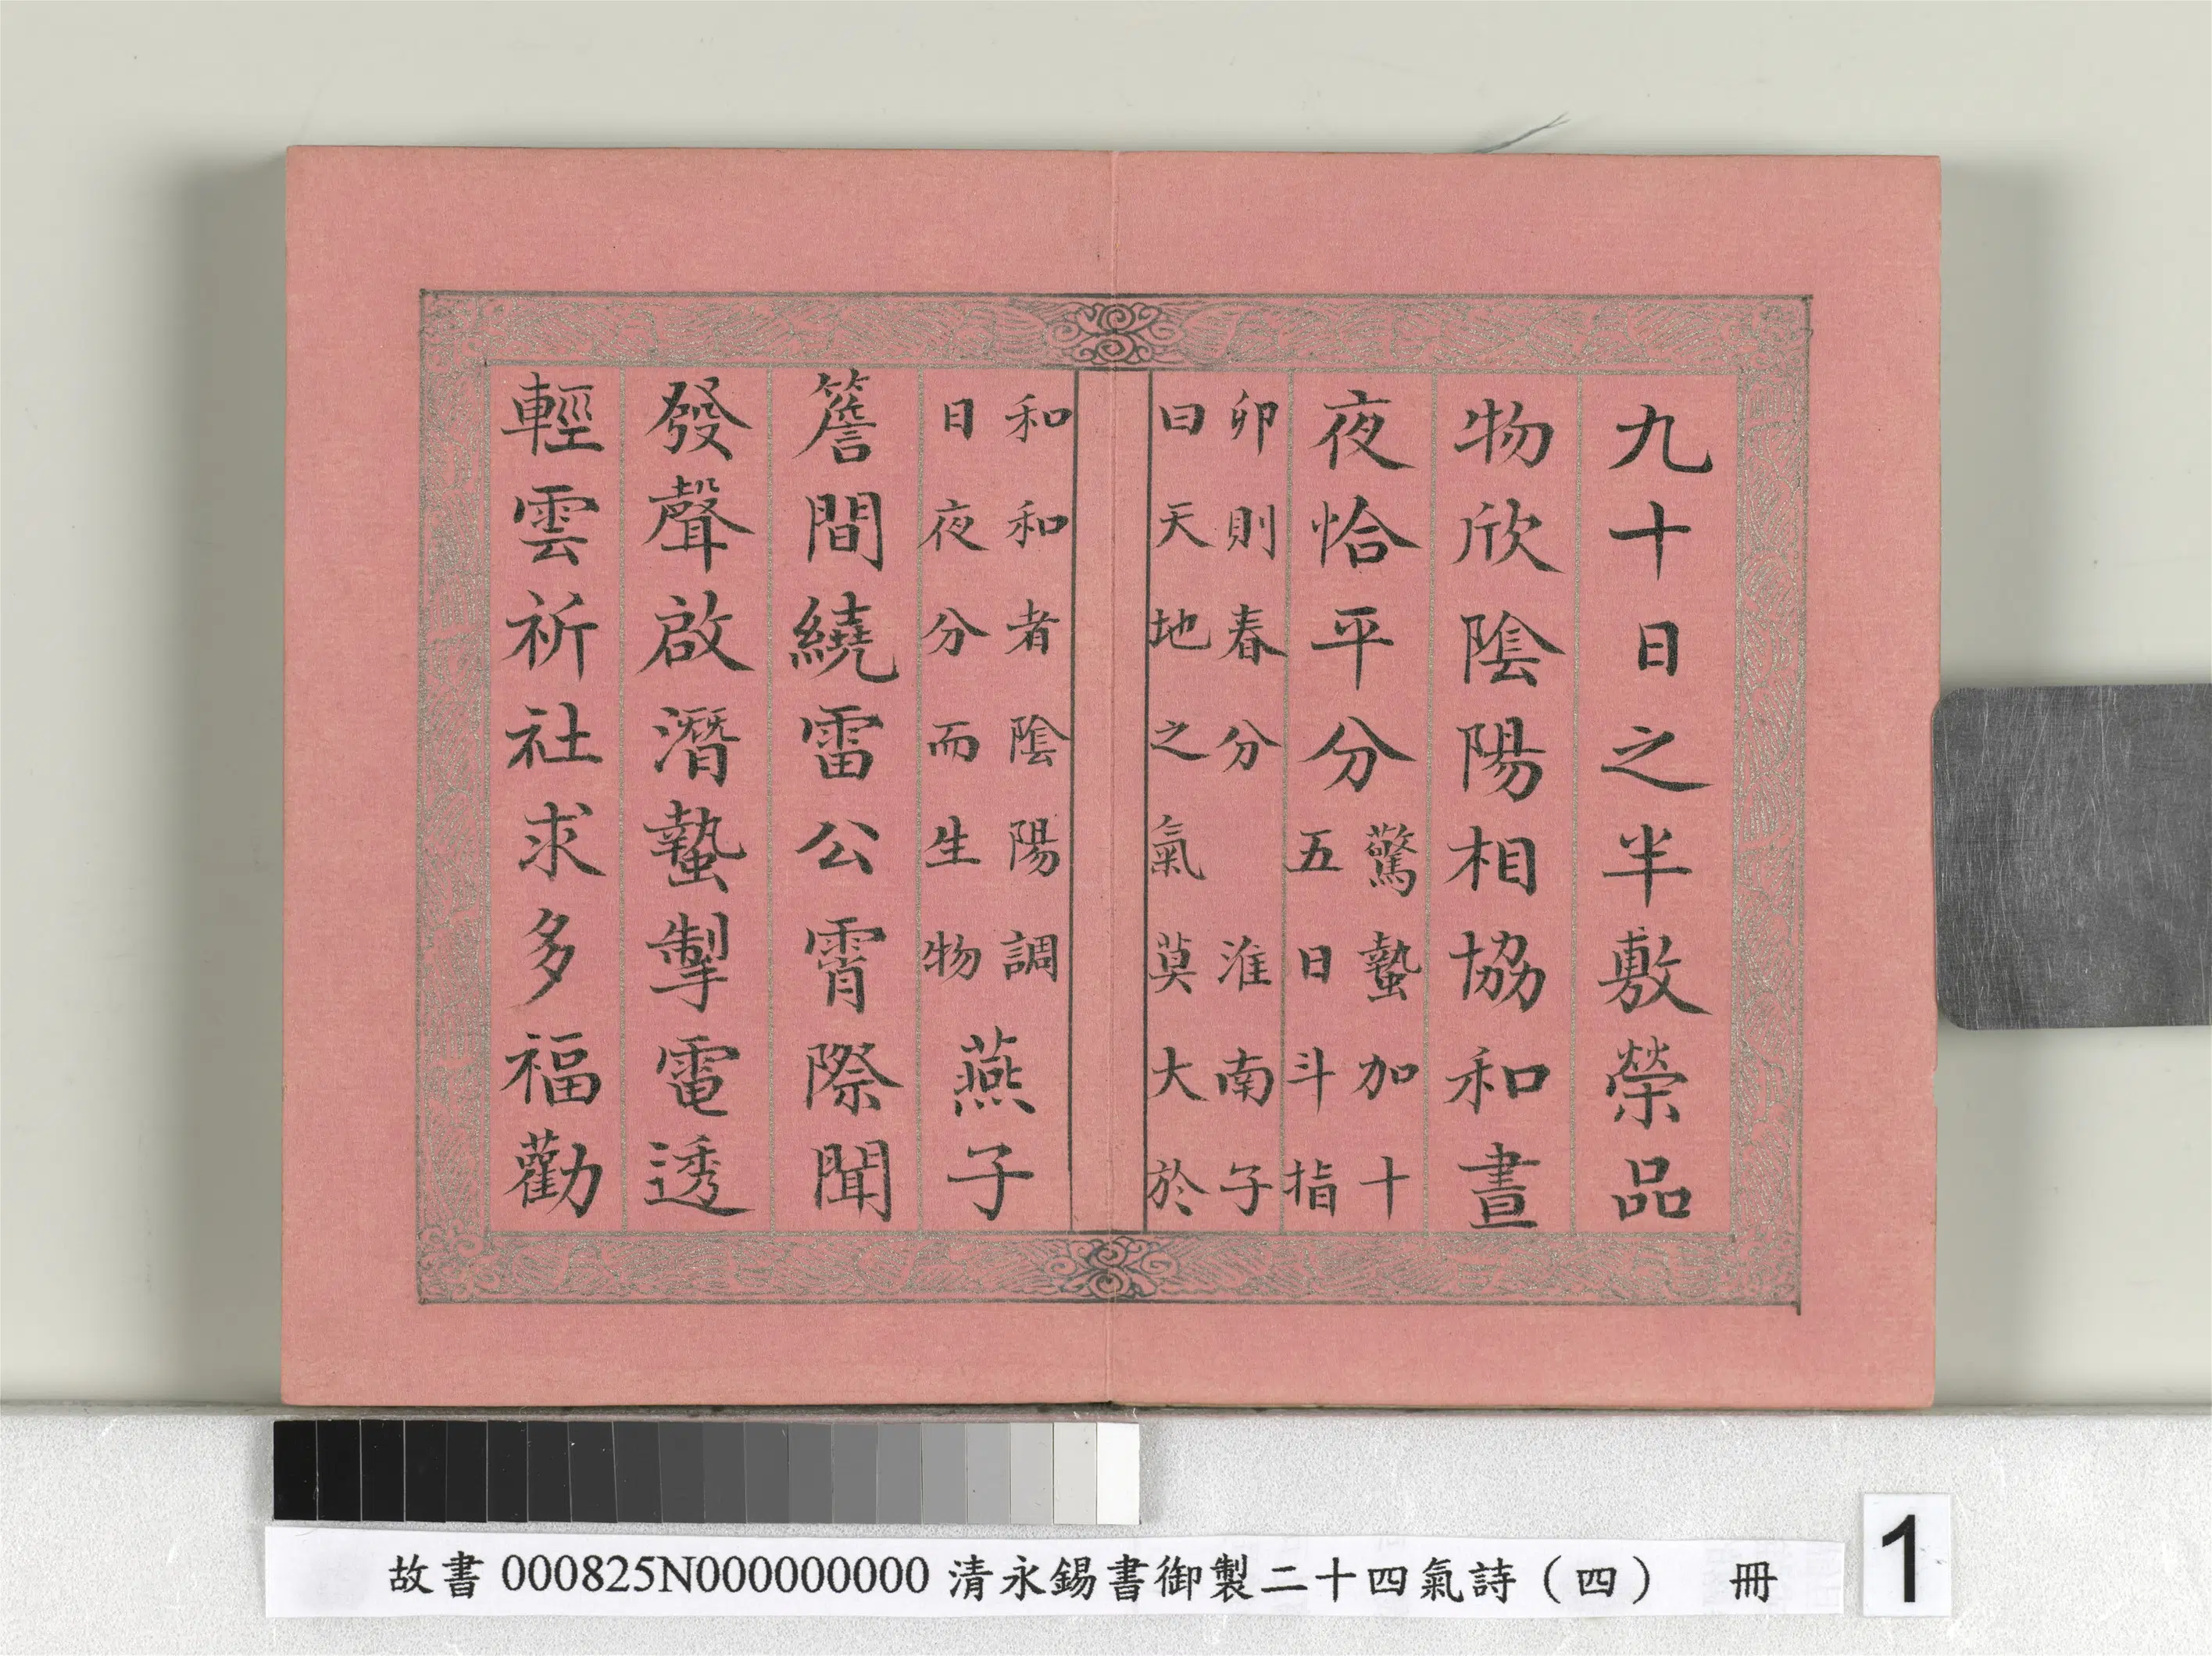 九十日之半敷榮品
物欣陰陽相協和晝
夜恰平分驚蟄加十
五日斗指
卯則春分 淮南子
曰天地之氣莫大於
和和者陰陽調
日夜分而生物燕子
簷間繞雷公霄際聞
發聲啟潛蟄掣電透
輕雲祈社求多福勸
故書 000825N000000000 清永錫書御製二十四氣詩(四) 冊
1